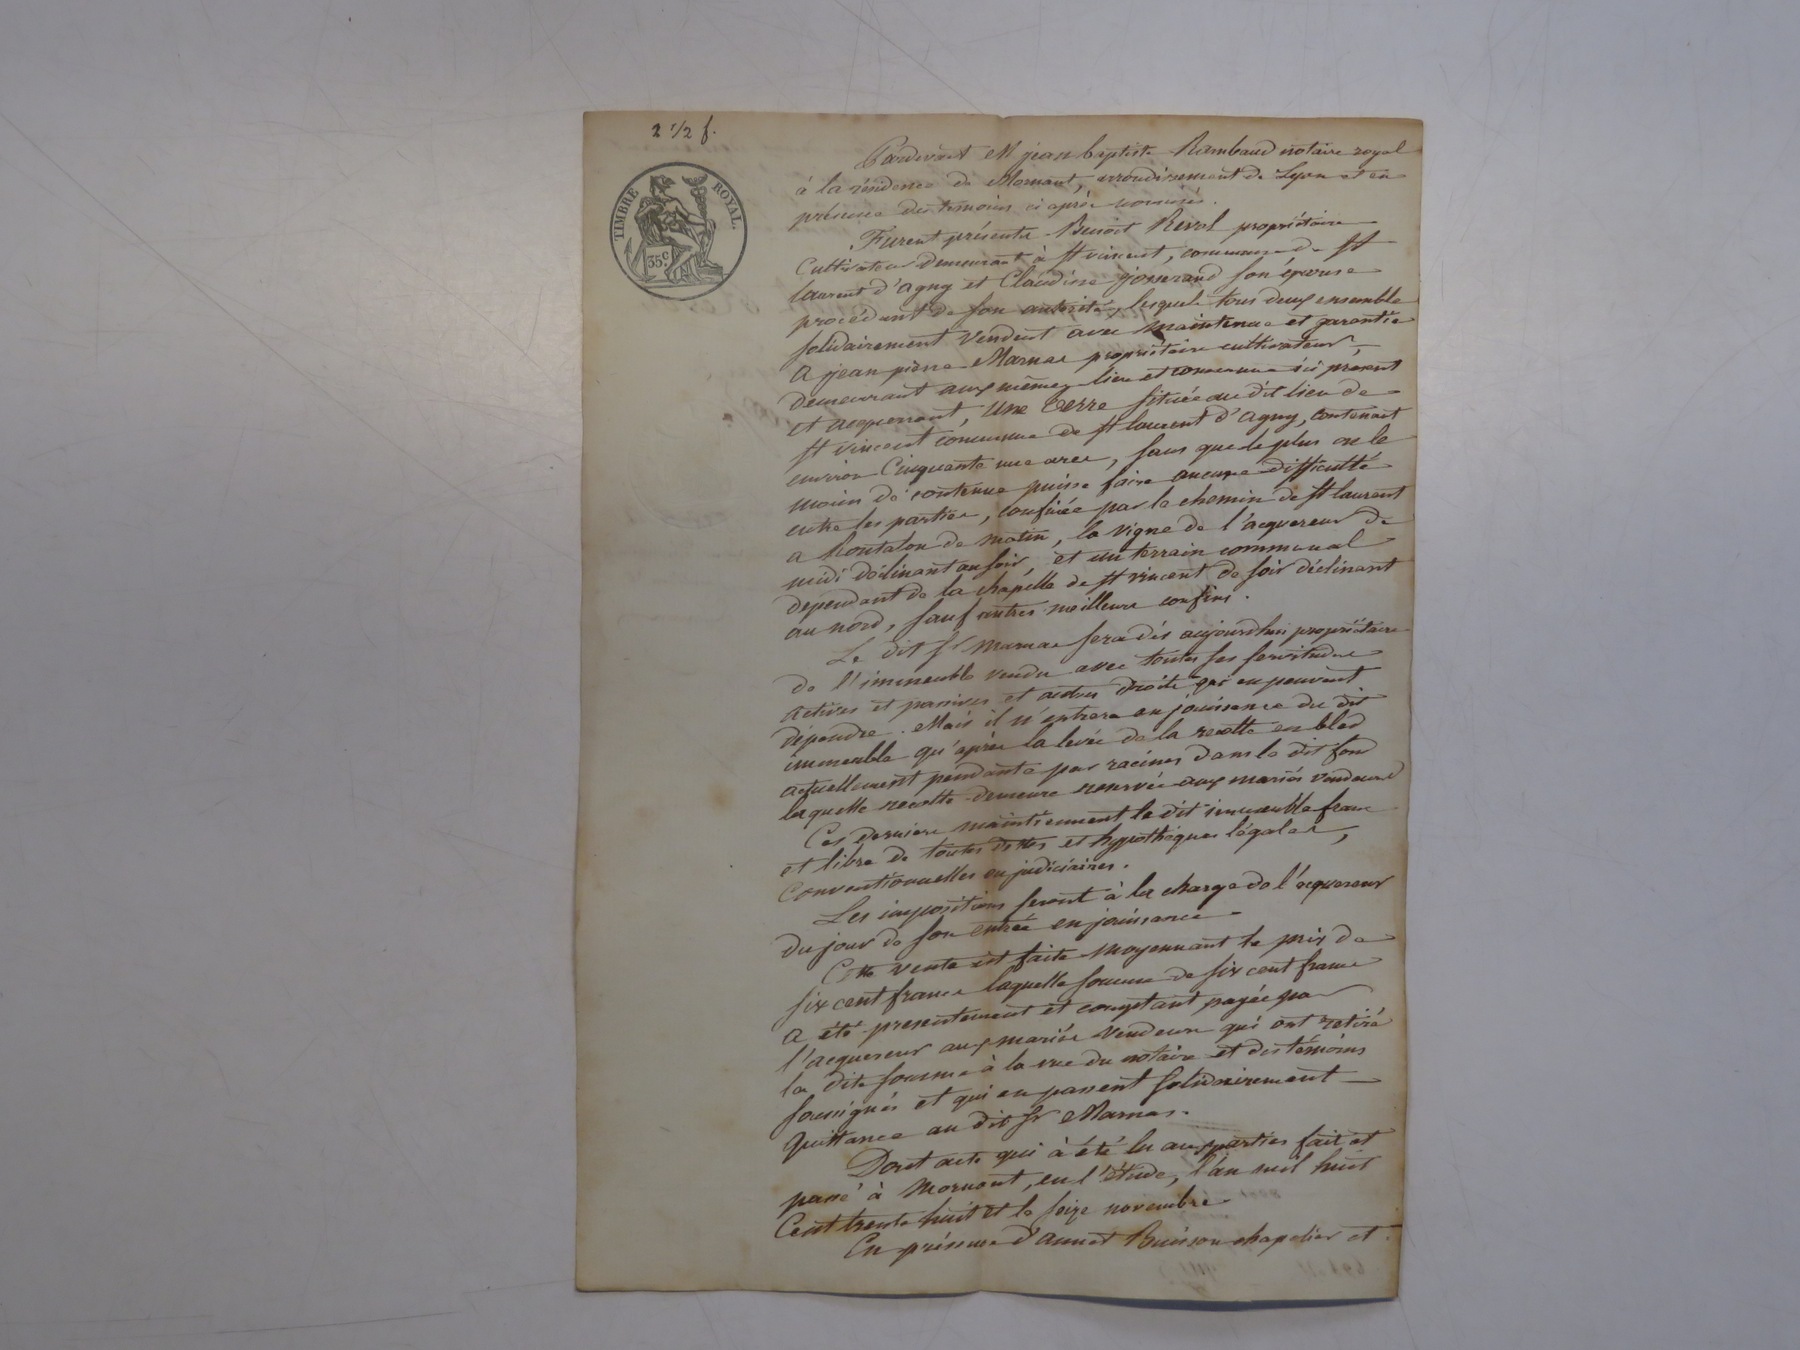 2 1/2 f.
TIMBRE ROYAL.
35 c.
Pardevant Me jean baptiste Rambaud notaire royal
à la résidence de Mornant, arrondissement de Lyon et en
présence des temoins ci après nommés.
Furent présents Benoit Revol propriétaire
Cultivateur demeurant à St vincent, commune de St
laurent d'agny et Claudine josserand son épouse
procédant de son autorité, lesquels tous deux ensemble
solidairement vendent avec maintenue et garantie
A jean pierre Marnas propriétaire cultivateur,
demeurant aux mêmes lieu et commune ici present
et acquerant, une terre située au dit lieu de
St vincent commune de St laurent d'agny, contenant
environ Cinquante une ares, sans que le plus ou le
moins de contenue puisse faire aucune difficulté
entre les parties, confinée par le chemin de St laurent
a hontalon de matin, la vigne de l'acquereur de
midi déclinant au soir, et un terrain communal
dependant de la chapelle de St vincent de soir déclinant
au nord, sauf autres meilleurs confins.
Le dit Sr Marnas sera dès aujourdhui propriétaire
de l'immeuble vendu avec toutes ses servitudes
actives et passives et autres droits qui en peuvent
dépendre. Mais il n'entrera en jouissance du dit
immeuble qu'après la levée de la recolte en bled
actuellement pendante par racines dans le dit fond
laquelle recolte demeure reservée aux mariés vendeurs
Ces derniers maintiennent le dit immeuble franc
et libre de toutes dettes et hypothèques légales,
Conventionnelles ou judiciaires.
Les impositions seront à la charge de l'acquereur
du jour de son entrée en jouissance.
Cette vente est faite moyennant le prix de
six cent francs laquelle somme de six cent francs
a été presentement et comptant payée par
l'acquereur aux mariés vendeurs qui ont retiré
la dite somme à la vue du notaire et des témoins
soussignés et qui en passent solidairement
quittance au dit Sr Marnas.
Dont acte qui à été lu aux parties fait et
passé à Mornant, en l'étude, l'an mil huit
Cent trente huit et le seize novembre
En présence d'annet Buisson chapelier et